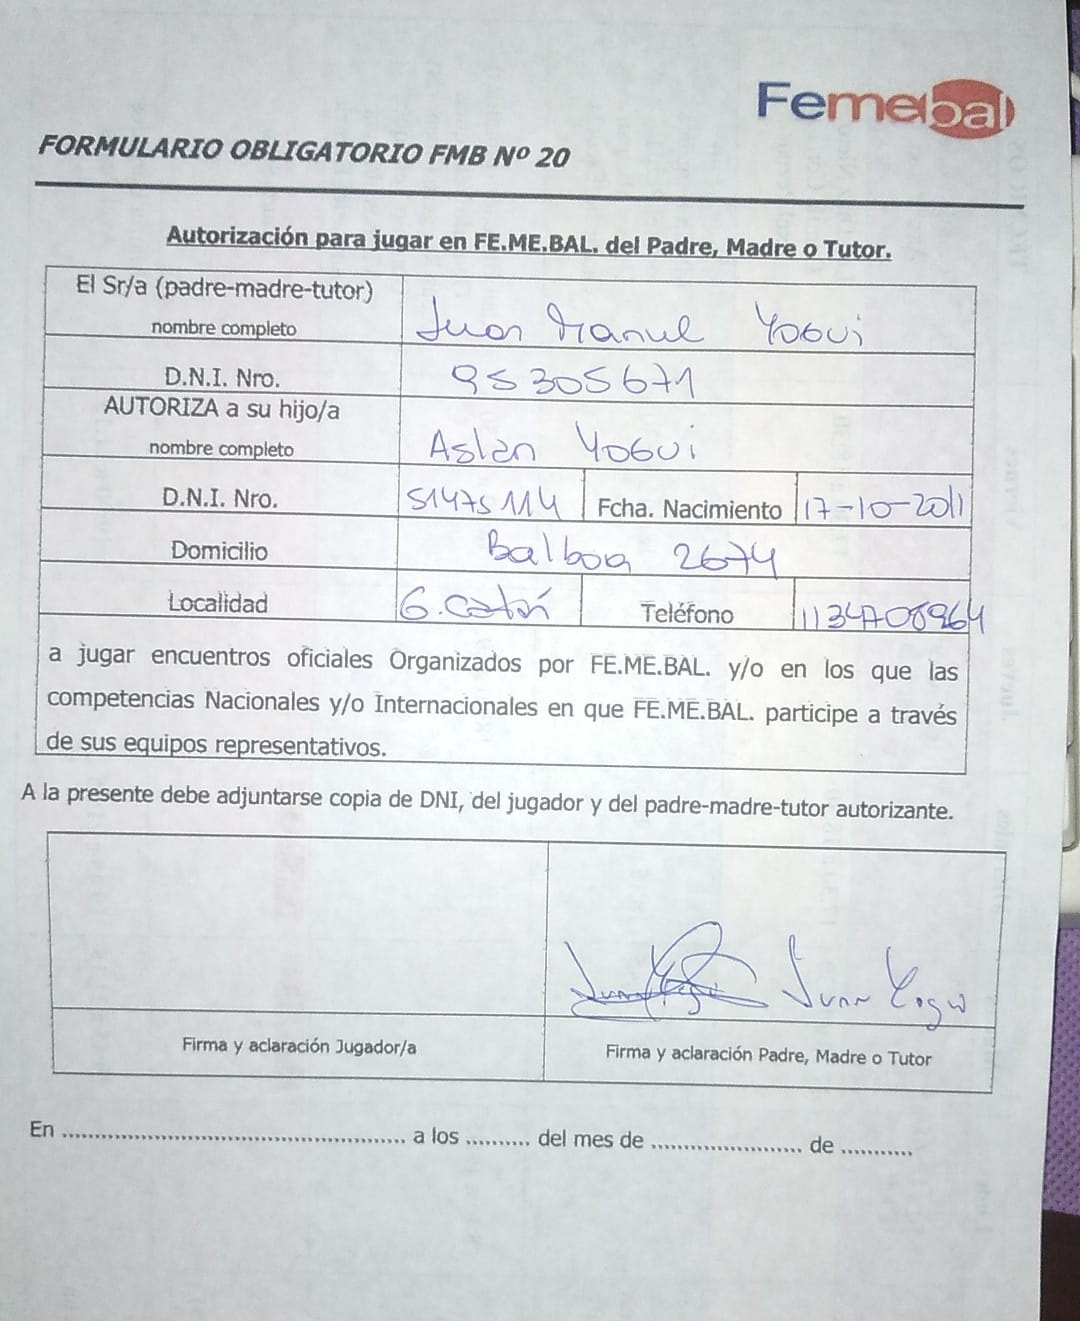 Femebal
FORMULARIO OBLIGATORIO FMB Nº 20
Autorización para jugar en FE.ME.BAL. del Padre, Madre o Tutor.
El Sr/a (padre-madre-tutor)
nombre completo
Juan Manuel Yogui
D.N.I. Nro.
95305671
AUTORIZA a su hijo/a
nombre completo
Aslan Yogui
D.N.I. Nro.
51475114
Fcha. Nacimiento
17-10-2011
Domicilio
Balboa 2674
Localidad
G. Catán
Teléfono
a jugar encuentros oficiales Organizados por FE.ME.BAL. y/o en los que las
competencias Nacionales y/o Internacionales en que FE.ME.BAL. participe a través
de sus equipos representativos.
A la presente debe adjuntarse copia de DNI, del jugador y del padre-madre-tutor autorizante.
Juan Yogui
Firma y aclaración Jugador/a
Firma y aclaración Padre, Madre o Tutor
En ................................................ a los .......... del mes de ........................ de ...........